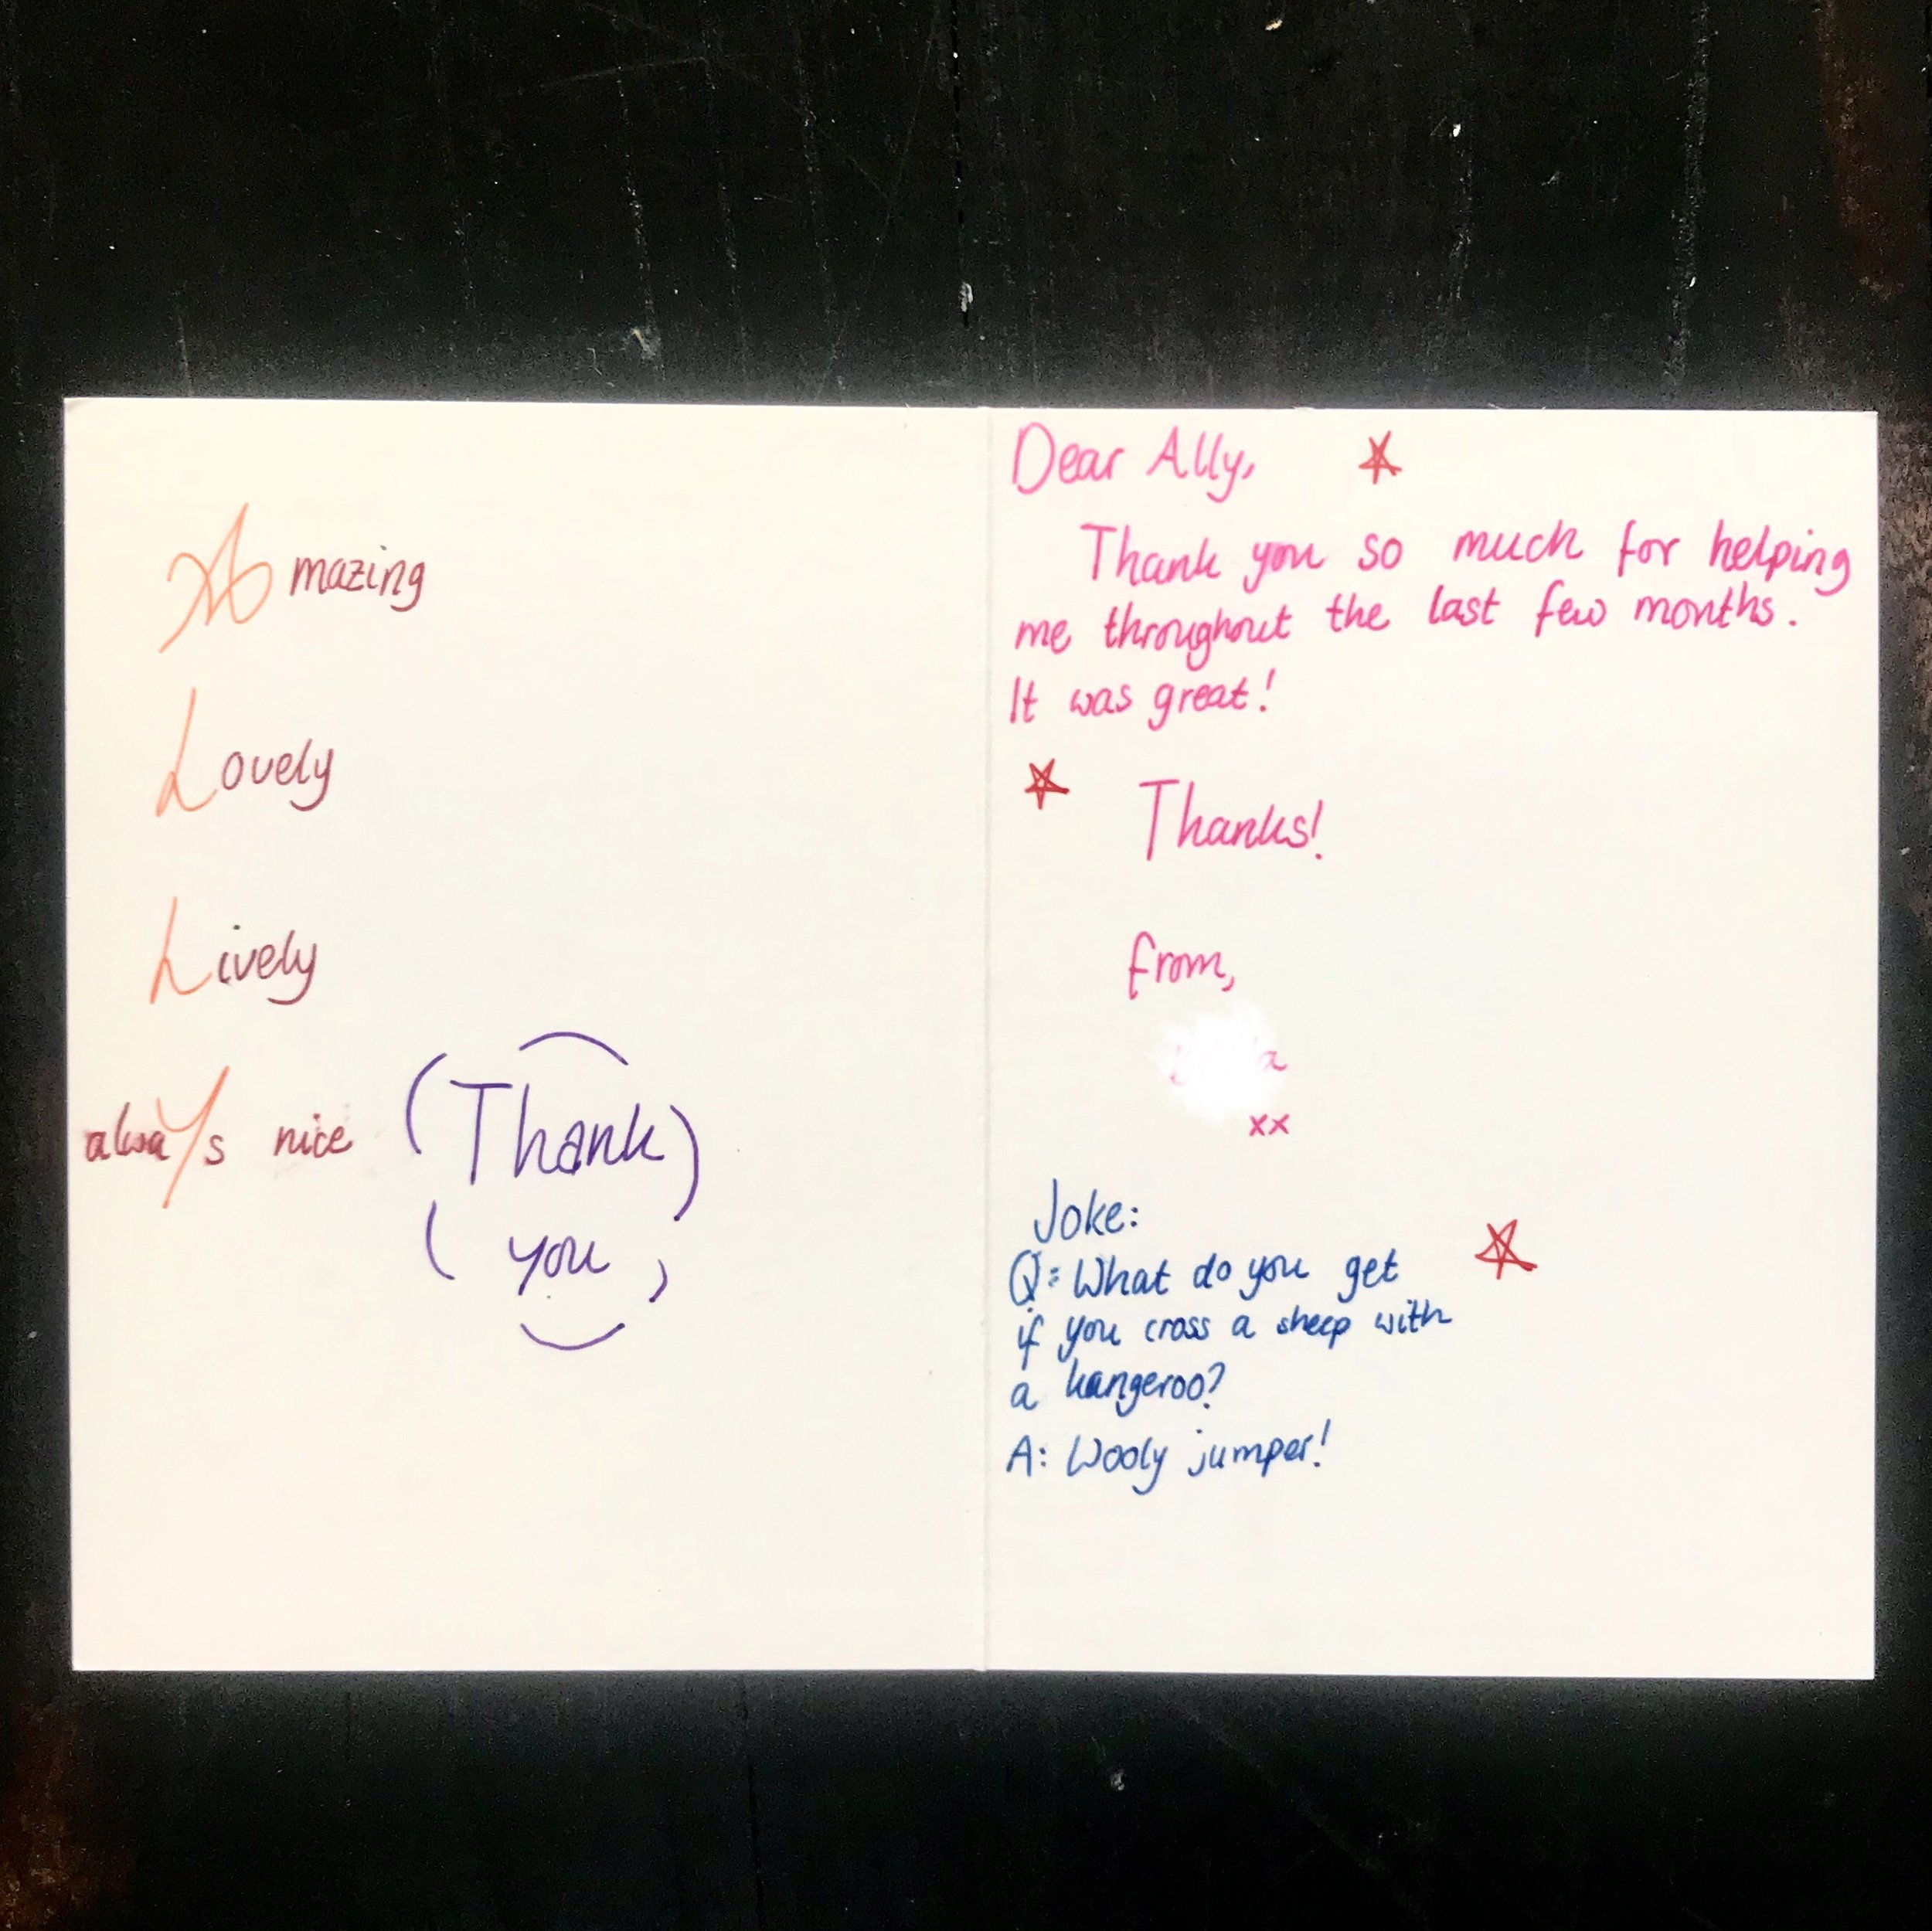 Amazing
Lovely
Lively
alwaYs nice
Thank
you
Dear Ally,
Thank you so much for helping
me throughout the last few months.
It was great!
Thanks!
from,
xx
Joke:
Q: What do you get
if you cross a sheep with
a kangeroo?
A: Wooly jumper!